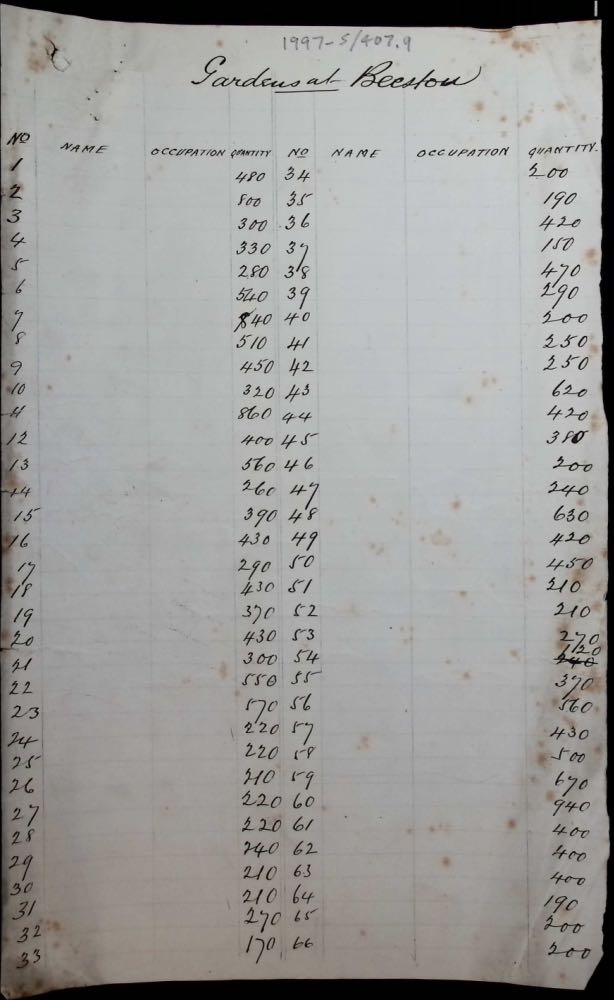 1997-5/407.9
Gardens at Beeston
No NAME OCCUPATION QUANTITY No NAME OCCUPATION QUANTITY.
1 480 34 200
2 800 35 190
3 300 36 420
4 330 37 150
5 280 38 470
6 540 39 290
7 840 40 200
8 510 41 250
9 450 42 250
10 320 43 620
11 860 44 420
12 400 45 380
13 560 46 200
14 260 47 240
15 390 48 630
16 430 49 420
17 290 50 450
18 430 51 210
19 370 52 210
20 430 53 270
21 300 54 1120 240
22 550 55 370
23 570 56 560
24 220 57 430
25 220 58 500
26 210 59 670
27 220 60 940
28 220 61 400
29 240 62 400
30 210 63 400
31 210 64 190
32 270 65 200
33 170 66 200